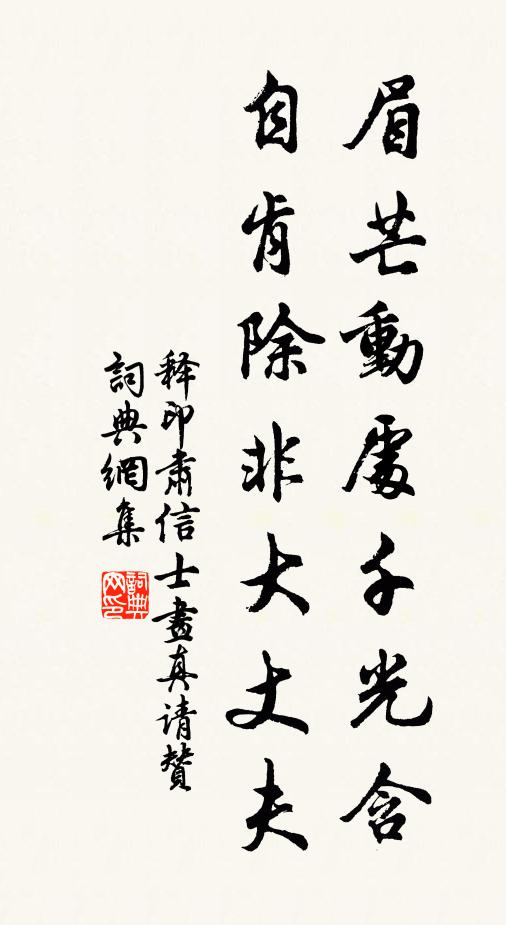 眉芒動處千光含
自肯除非大丈夫
释印肅信士畫真请贊
詞典網集
詞典网印